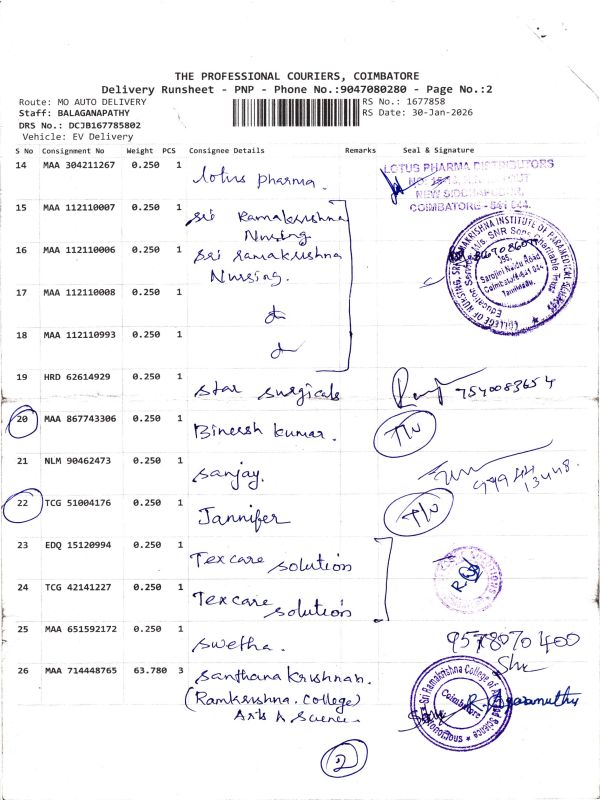 THE PROFESSIONAL COURIERS, COIMBATORE
Delivery Runsheet - PNP - Phone No.:9047080280 - Page No.:2
Route: MO AUTO DELIVERY RS No.: 1677858
Staff: BALAGANAPATHY RS Date: 30-Jan-2026
DRS No.: DCJB167785802
Vehicle: EV Delivery
S No Consignment No Weight PCS Consignee Details Remarks Seal & Signature
14 MAA 304211267 0.250 1 lotus pharma. LOTUS PHARMA DISTRIBUTORS
NEW SIDDHAPUDUR,
COIMBATORE - 641 044.
15 MAA 112110007 0.250 1 Sri Ramakrishna
Nursing
16 MAA 112110006 0.250 1 Sri ramakrishna
Nursing.
COLLEGE OF NURSING, SRI RAMAKRISHNA INSTITUTE OF PARAMEDICAL SCIENCES
Educational Service: M/s. SNR Sons Charitable Trust
395,
Sarojini Naidu Road
Coimbatore-641 044
Tamilnadu.
17 MAA 112110008 0.250 1
18 MAA 112110993 0.250 1
19 HRD 62614929 0.250 1 Star Surgicals 9540083654
20 MAA 867743306 0.250 1 Bineesh Kumar. T/U
21 NLM 90462473 0.250 1 Sanjay. 99944
13448.
22 TCG 51004176 0.250 1 Jannifer T/U
23 EDQ 15120994 0.250 1 Texcare Solution
24 TCG 42141227 0.250 1 Texcare Solution's
25 MAA 651592172 0.250 1 Swetha. 9578070400
26 MAA 714448765 63.780 3 Santhana Krishnan.
(Ramkrishna. College)
Arts & Science
Sri Ramakrishna College of Arts and Science
Coimbatore
2